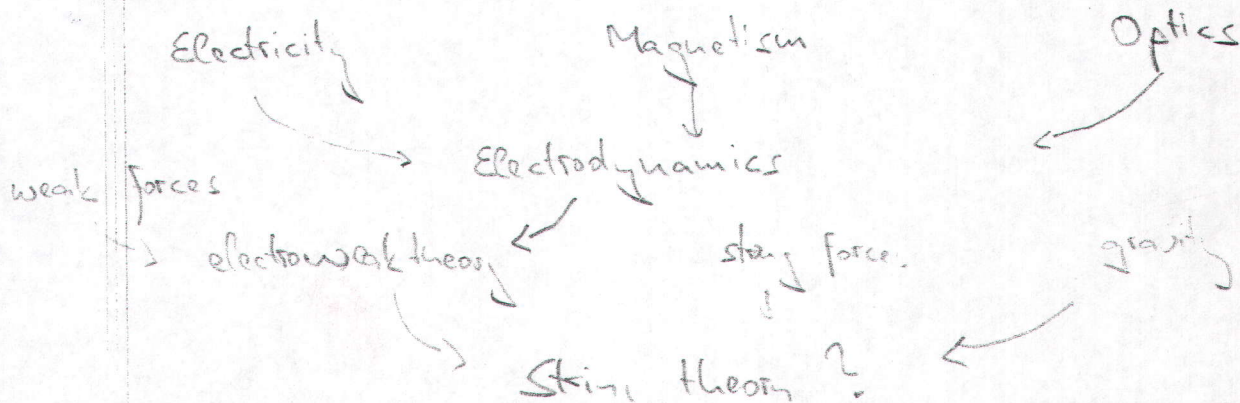 Electricity Magnetism Optics
Electrodynamics
weak forces
electroweak theory strong force. gravity
String theory ?